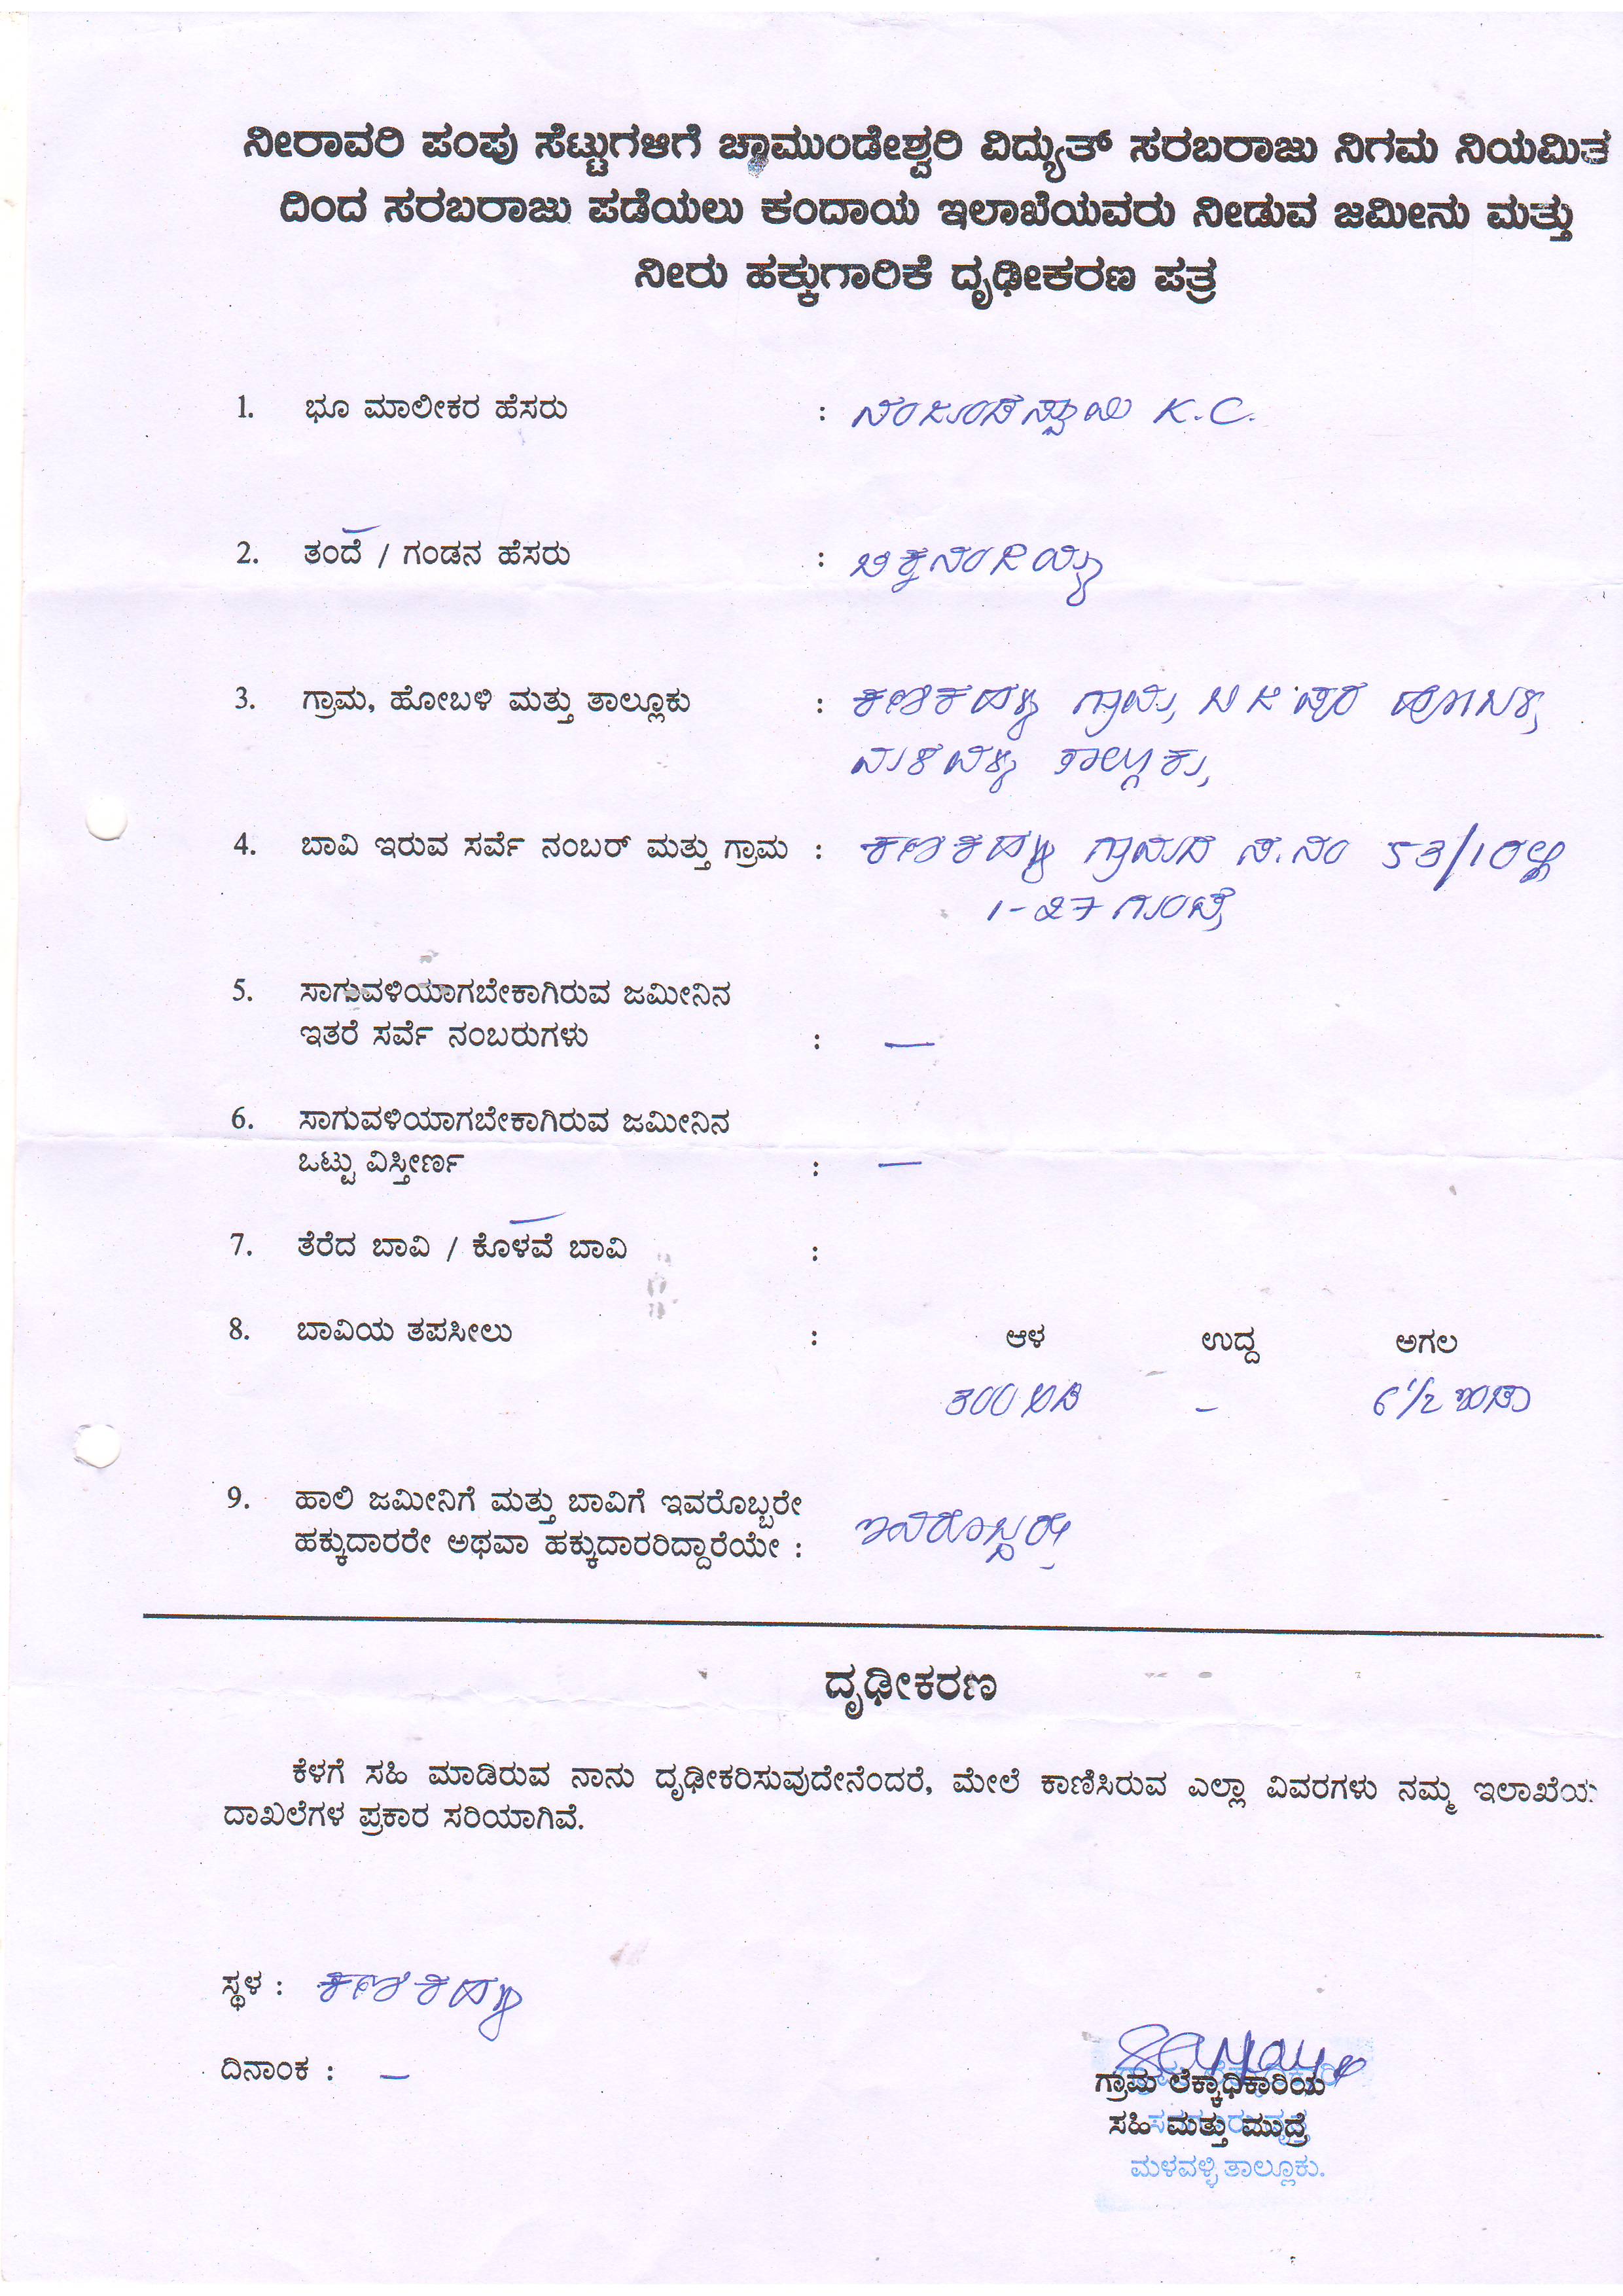 ನೀರಾವರಿ ಪಂಪು ಸೆಟ್ಟುಗಳಿಗೆ ಚಾಮುಂಡೇಶ್ವರಿ ವಿದ್ಯುತ್ ಸರಬರಾಜು ನಿಗಮ ನಿಯಮಿತ
ದಿಂದ ಸರಬರಾಜು ಪಡೆಯಲು ಕಂದಾಯ ಇಲಾಖೆಯವರು ನೀಡುವ ಜಮೀನು ಮತ್ತು
ನೀರು ಹಕ್ಕುಗಾರಿಕೆ ದೃಢೀಕರಣ ಪತ್ರ
1. ಭೂ ಮಾಲೀಕರ ಹೆಸರು : ನಂಜುಂಡಸ್ವಾಮಿ K.C.
2. ತಂದೆ / ಗಂಡನ ಹೆಸರು : ಚಿಕ್ಕನಂಜಯ್ಯ
3. ಗ್ರಾಮ, ಹೋಬಳಿ ಮತ್ತು ತಾಲ್ಲೂಕು : ಗ್ರಾಮ, ಹೋಬಳಿ,
ಮಳವಳ್ಳಿ ತಾಲ್ಲೂಕು,
4. ಬಾವಿ ಇರುವ ಸರ್ವೆ ನಂಬರ್ ಮತ್ತು ಗ್ರಾಮ : ಗ್ರಾಮದ ಸ.ನಂ 53/10ರಲ್ಲಿ
1-27 ಗುಂಟೆ
5. ಸಾಗುವಳಿಯಾಗಬೇಕಾಗಿರುವ ಜಮೀನಿನ
ಇತರೆ ಸರ್ವೆ ನಂಬರುಗಳು : —
6. ಸಾಗುವಳಿಯಾಗಬೇಕಾಗಿರುವ ಜಮೀನಿನ
ಒಟ್ಟು ವಿಸ್ತೀರ್ಣ : —
7. ತೆರೆದ ಬಾವಿ / ಕೊಳವೆ ಬಾವಿ :
8. ಬಾವಿಯ ತಪಸೀಲು : ಆಳ ಉದ್ದ ಅಗಲ
300 ಅಡಿ – 6 1/2 ಇಂಚು
9. ಹಾಲಿ ಜಮೀನಿಗೆ ಮತ್ತು ಬಾವಿಗೆ ಇವರೊಬ್ಬರೇ
ಹಕ್ಕುದಾರರೇ ಅಥವಾ ಹಕ್ಕುದಾರರಿದ್ದಾರೆಯೇ : ಇವರೊಬ್ಬರೇ
ದೃಢೀಕರಣ
ಕೆಳಗೆ ಸಹಿ ಮಾಡಿರುವ ನಾನು ದೃಢೀಕರಿಸುವುದೇನೆಂದರೆ, ಮೇಲೆ ಕಾಣಿಸಿರುವ ಎಲ್ಲಾ ವಿವರಗಳು ನಮ್ಮ ಇಲಾಖೆಯ
ದಾಖಲೆಗಳ ಪ್ರಕಾರ ಸರಿಯಾಗಿವೆ.
ಸ್ಥಳ :
ದಿನಾಂಕ : —
ಗ್ರಾಮ ಲೆಕ್ಕಾಧಿಕಾರಿಯ
ಸಹಿ ಮತ್ತು ಮುದ್ರೆ
ಮಳವಳ್ಳಿ ತಾಲ್ಲೂಕು.